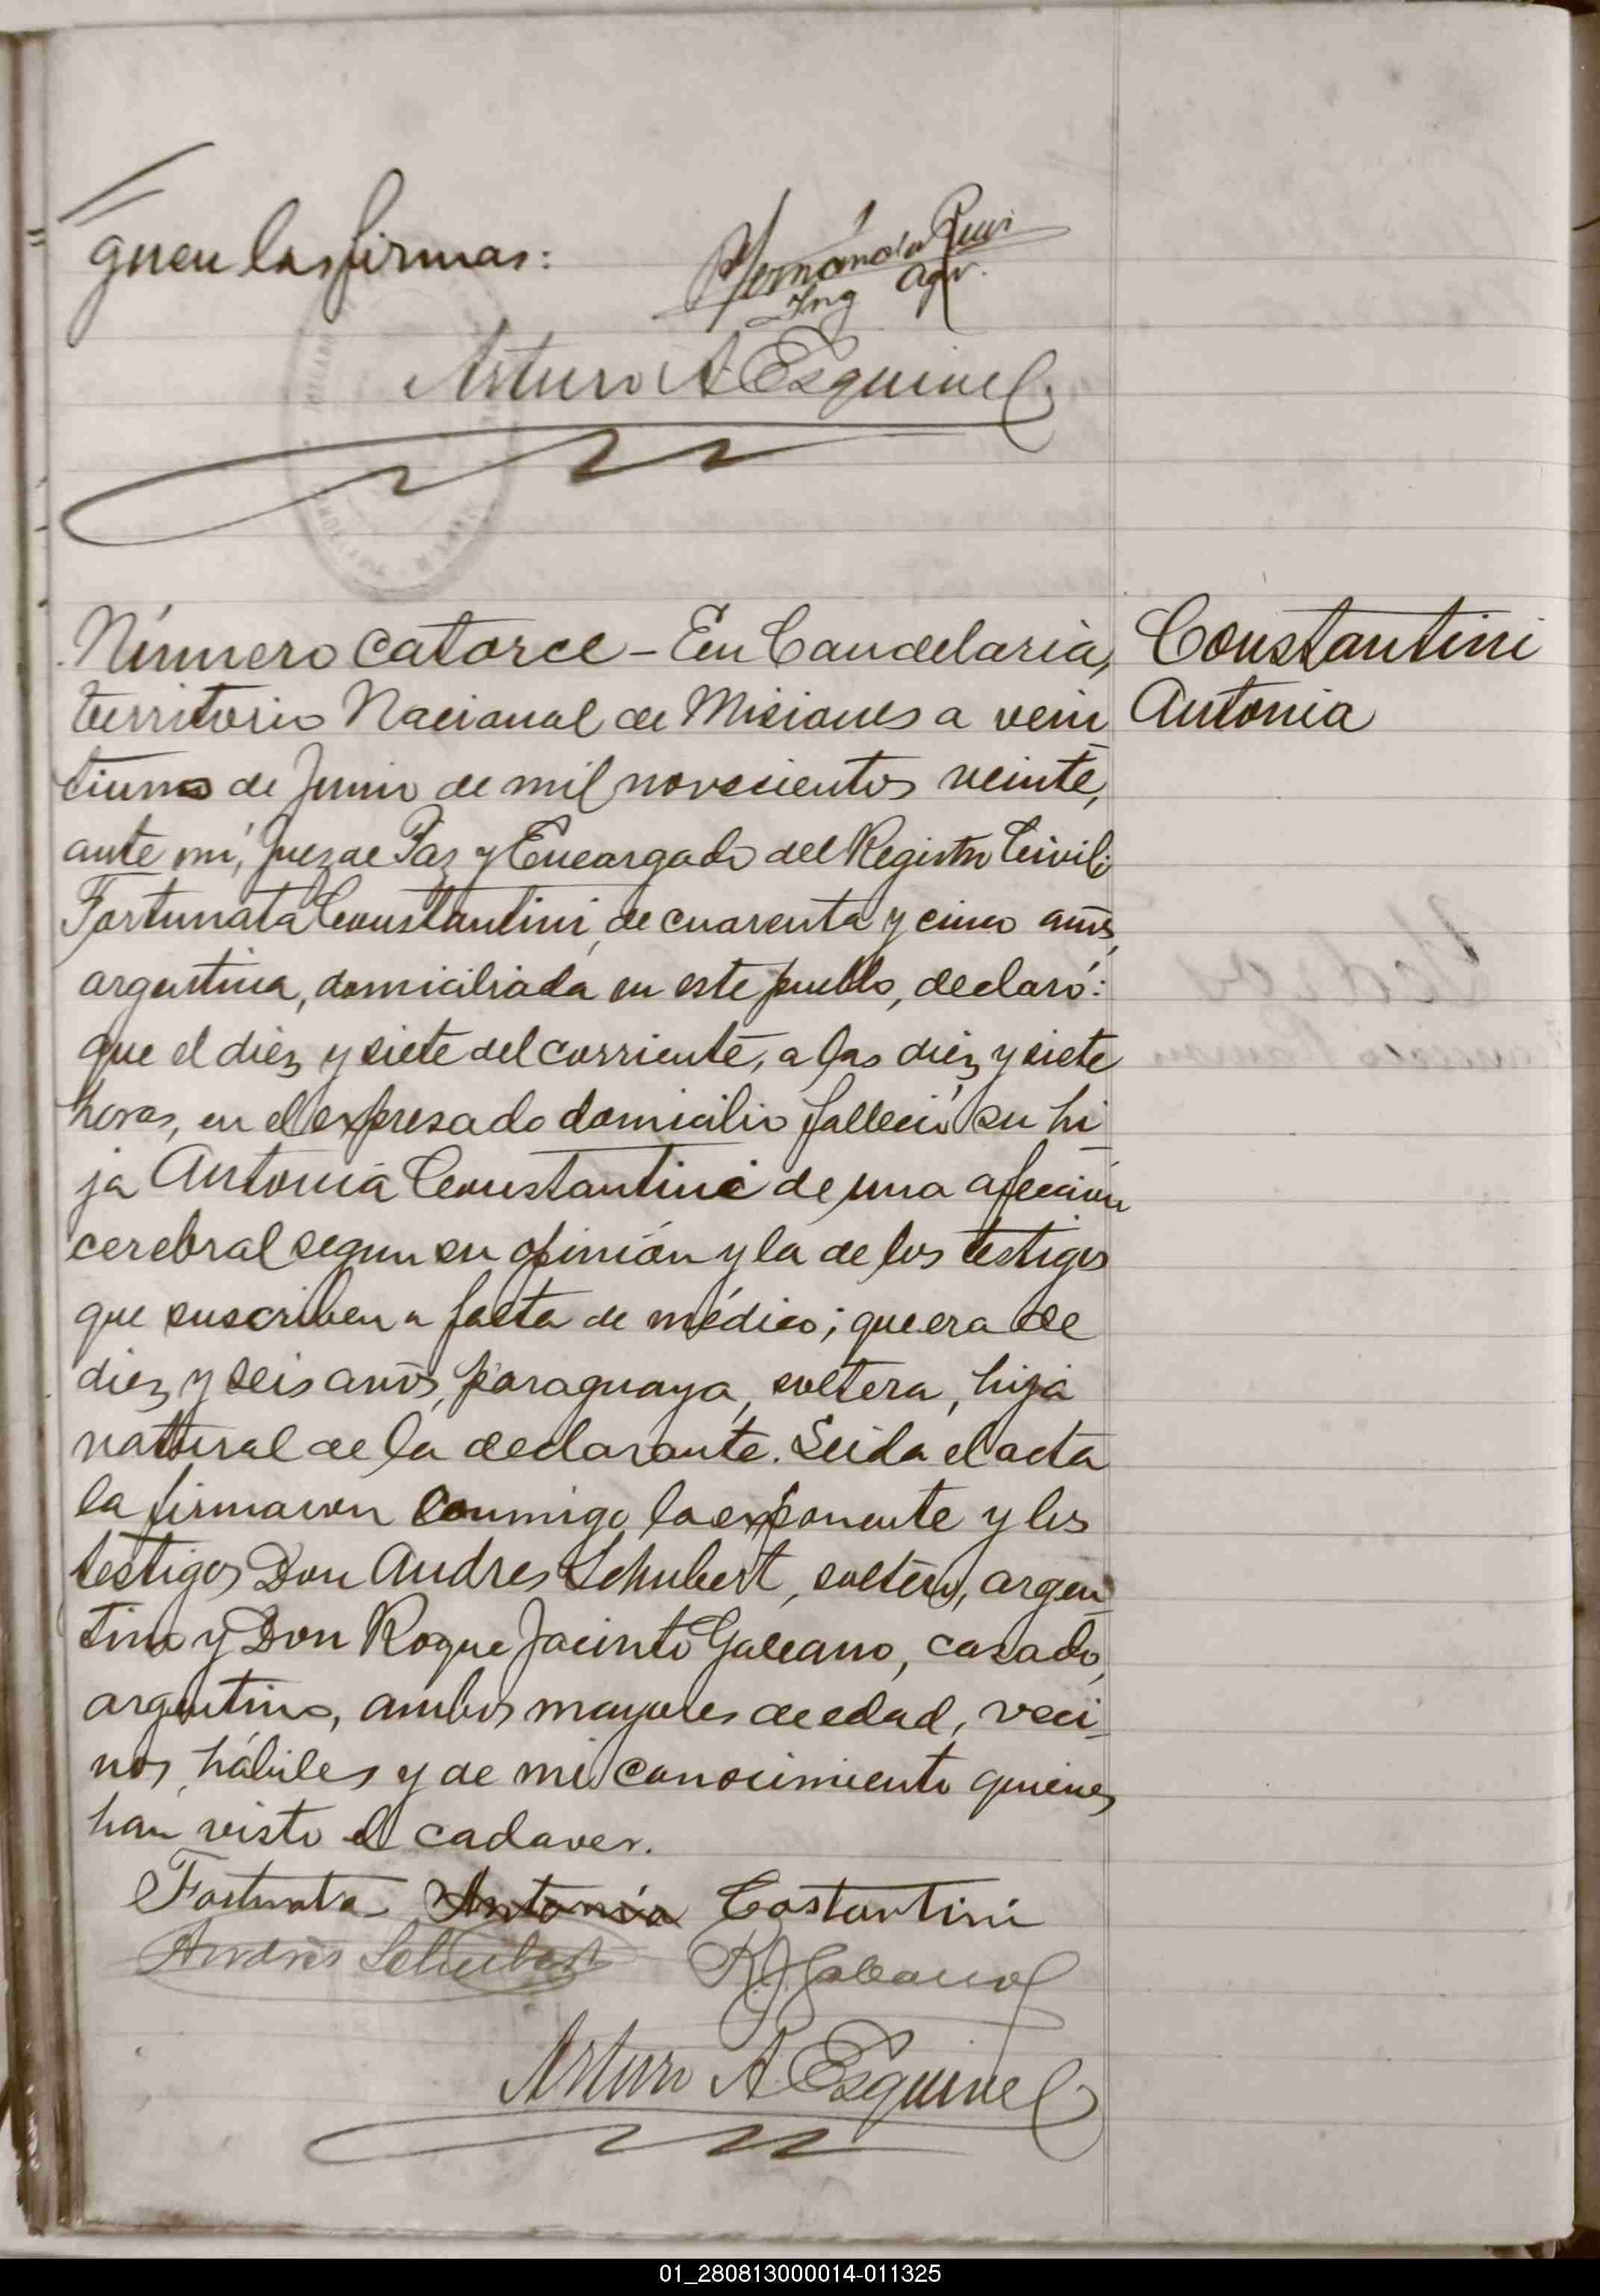 guen las firmas:
Hernández Ruiz
Ing agr.
Arturo A Esquivel
Número catorce - En Candelaria,
territorio Nacional de Misiones a vein
tiuno de Junio de mil novecientos veinte,
ante mí, Juez de Paz y Encargado del Registro Civil:
Fortunata Constantini, de cuarenta y cinco años,
argentina, domiciliada en este pueblo, declaró:
que el diez y siete del corriente, a las diez y siete
horas, en el expresado domicilio falleció su hi
ja Antonia Constantini de una afección
cerebral segun su opinión y la de los testigos
que suscriben a falta de médico; que era de
diez y seis años, paraguaya, soltera, hija
natural de la declarante. Leida el acta
la firmaron conmigo la exponente y los
testigos Don Andres Schubert, soltero, argen
tino y Don Roque Jacinto Galeano, casado,
argentino, ambos mayores de edad, veci-
nos, hábiles y de mi conocimiento quienes
han visto el cadaver.
Fortunata Antonia Costantini
Andrés Schubert R. J. Galeano
Arturo A. Esquivel
Constantini
Antonia
01_280813000014-011325